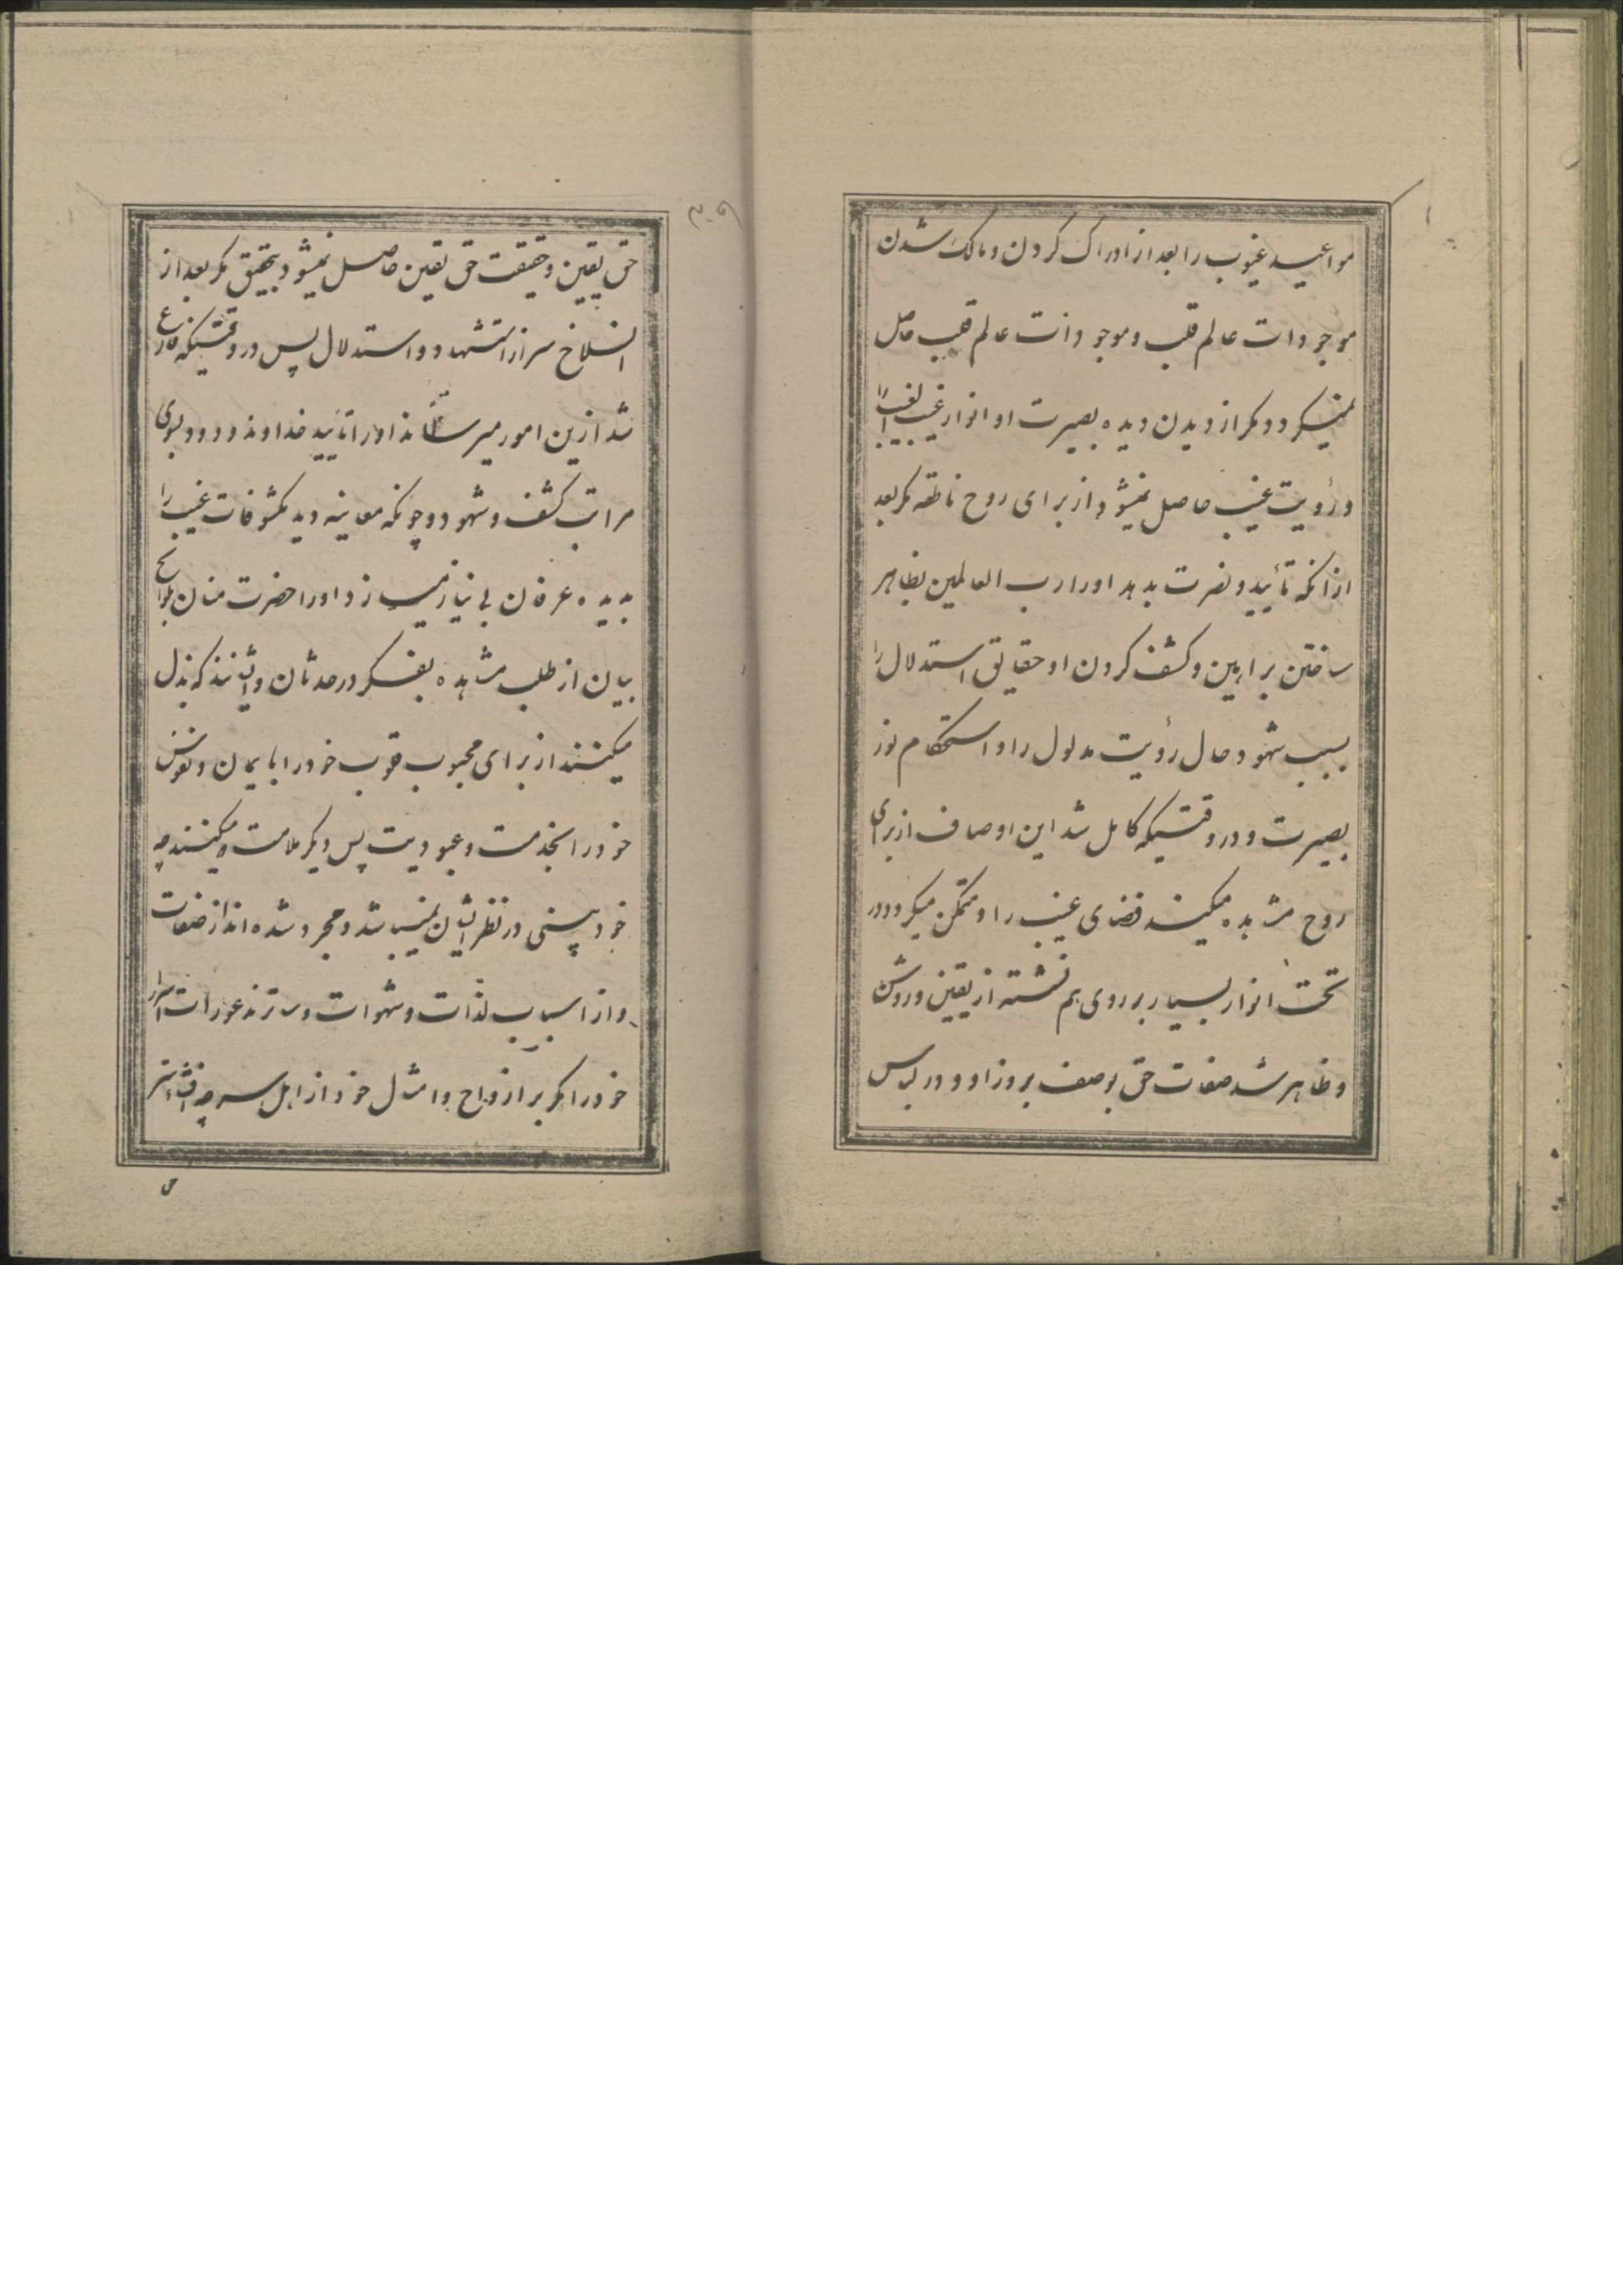 مواعید غیوب را بعد از ادراک کردن و مالک شدن
موجودات عالم قلب و موجودات عالم قلب حاصل
نمیگردد مگر از دیدن دیده بصیرت او انوار غیب الغیب را
و رؤیت غیب حاصل نمیشود از برای روح ناطقه مگر بعد
از آنکه تأیید و نصرت بدهد او را رب العالمین بظاهر
ساختن براهین و کشف کردن او حقایق استدلال را
بسبب شهود حال رؤیت مدلول را و استحکام نور
بصیرت و در وقتیکه کامل شد این اوصاف از برای
روح مشاهده میکند فضای غیب را و متمکن میگردد در
تحت انوار بسیار بر روی هم نشسته از یقین و روشن
و ظاهر شد صفات حق بوصف بروز او و در لباس
۳۰۹
حق یقین و حقیقت حق یقین حاصل نمیشود بتحقیق مگر بعد از
انسلاخ سر از استشهاد و استدلال پس در وقتیکه فارغ
شد ازین امور میرساند او را تأیید خداوند ودود بسوی
مراتب کشف و شهود و چونکه معاینه دید مکشوفات غیب را
بدیده عرفان بی نیاز میسازد او را حضرت منان بلوایح
بیان از طلب مشاهده بفکر در حدثان و ایشانند که بذل
میکنند از برای محبوب قلوب خود را بایمان و نفوس
خود را بخدمت و عبودیت پس دیگر ملامت میکنند چه
خود بینی در نظر ایشان نمیباشد و مجرد شده اند از صفات
و از اسباب لذات و شهوات و ساترند عورات اسرار
خود را مگر بر ازواج و امثال خود از اهل سر چه افشاء سر